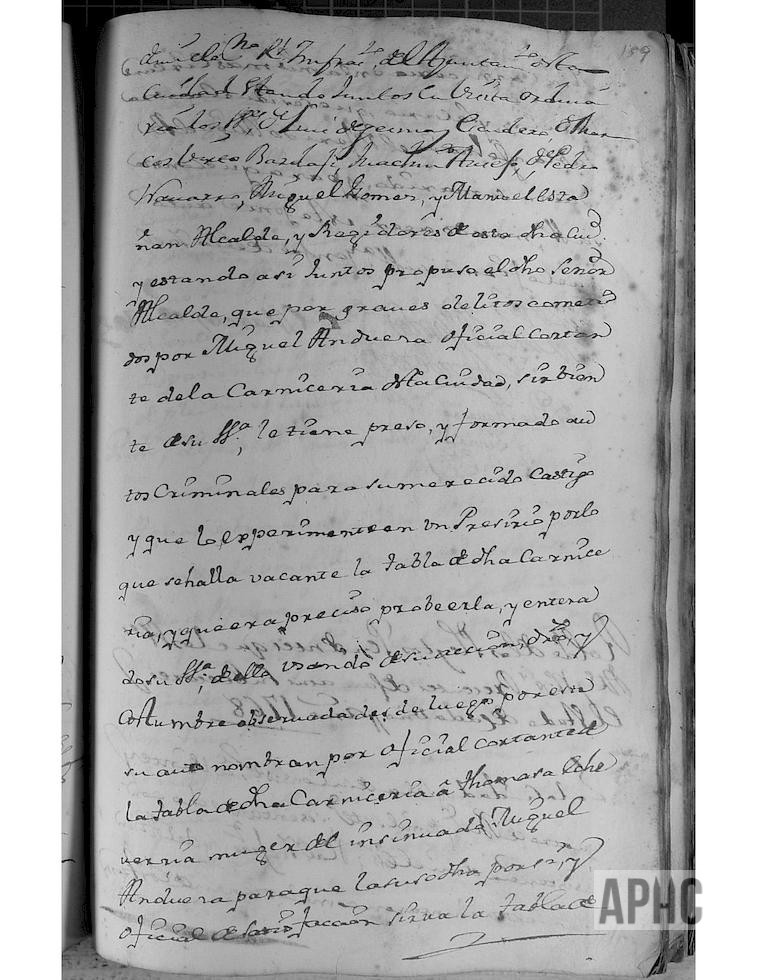 159
de el Ayuntam.to de esta
Ciudad Estando Juntos en Visita ordina
ria los SS.res
Juachin
Nauarro, Miguel Gomez, y Manuel Esta
ñan Alcalde, y Regidores de esta dha Ciud.d
y estando asi Juntos propuso el dho Señor
Alcalde, que por graues delitos cometi
dos por Miguel Anduera oficial Cortan
te de la Carniceria desta Ciudad, sirbien
te de su SSa, le tiene preso, y formado au
tos Criminales para su merecido Castigo
y que lo experimente en vn Presirio por lo
que se halla vacante la tabla de dha Carnice
ria, y que era preciso probeerla, y entera
do su SSa, dello vsando de su accion, dro, y
Costumbre obseruada desde luego por este
su auto nombran por oficial cortante de
la tabla de dha Carniceria â thomasa Eche
uerria muger del insinuado Miguel
Anduera para que la suso dha por si, y
oficial de satisfaccion sirua la tabla de
APHC